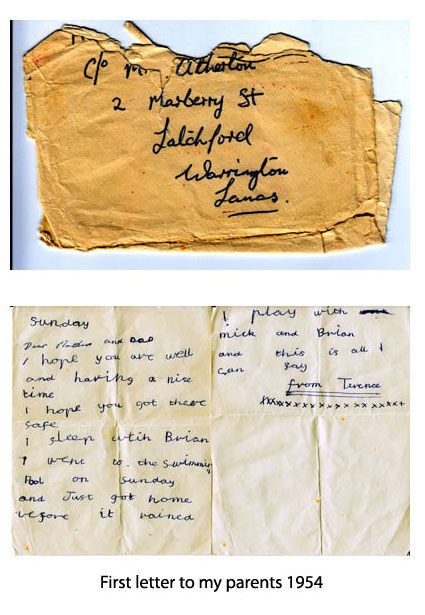 c/o Mr Atherton
2 Marberry St
Latchford
Warrington
Lancs.
Sunday
Dear Mother and Dad
I hope you are well
and having a nise
time
I hope you got there
safe
I sleep with Brian
I went to the swimming
Pool on Sunday
and Just got home
before it rained
I play with
mick and Brian
and this is all I
can say
from Terence
xxxxxxxxxxxxxxxxx
First letter to my parents 1954